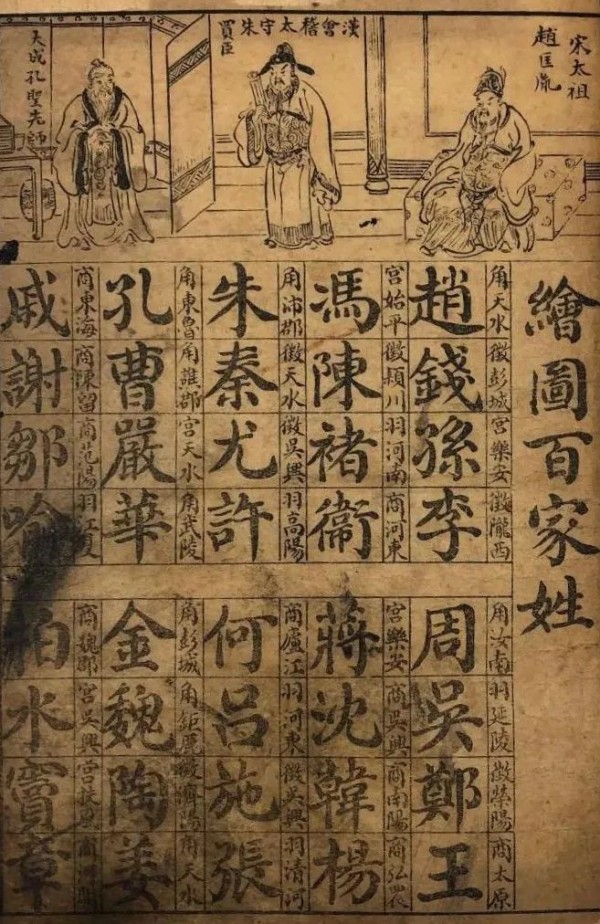 宋太祖
趙匡胤
漢會稽太守朱
買臣
大成孔聖先師
繪圖百家姓
角天水 徵彭城 宮樂安 徵隴西
趙錢孫李
宮始平 徵潁川 羽河南 商河東
馮陳褚衞
角沛郡 徵天水 徵吳興 羽高陽
朱秦尤許
角東魯 角譙郡 宮天水 角武陵
孔曹嚴華
商東海 商陳留 商范陽 羽江夏
戚謝鄒喻
角汝南 羽延陵 徵滎陽 商太原
周吳鄭王
宮樂安 商吳興 商南陽 商弘農
蔣沈韓楊
商廬江 羽河東 徵吳興 羽清河
何呂施張
角彭城 角鉅鹿 徵濟陽 角天水
金魏陶姜
商魏郡 宮吳興 宮扶風
柏水竇章